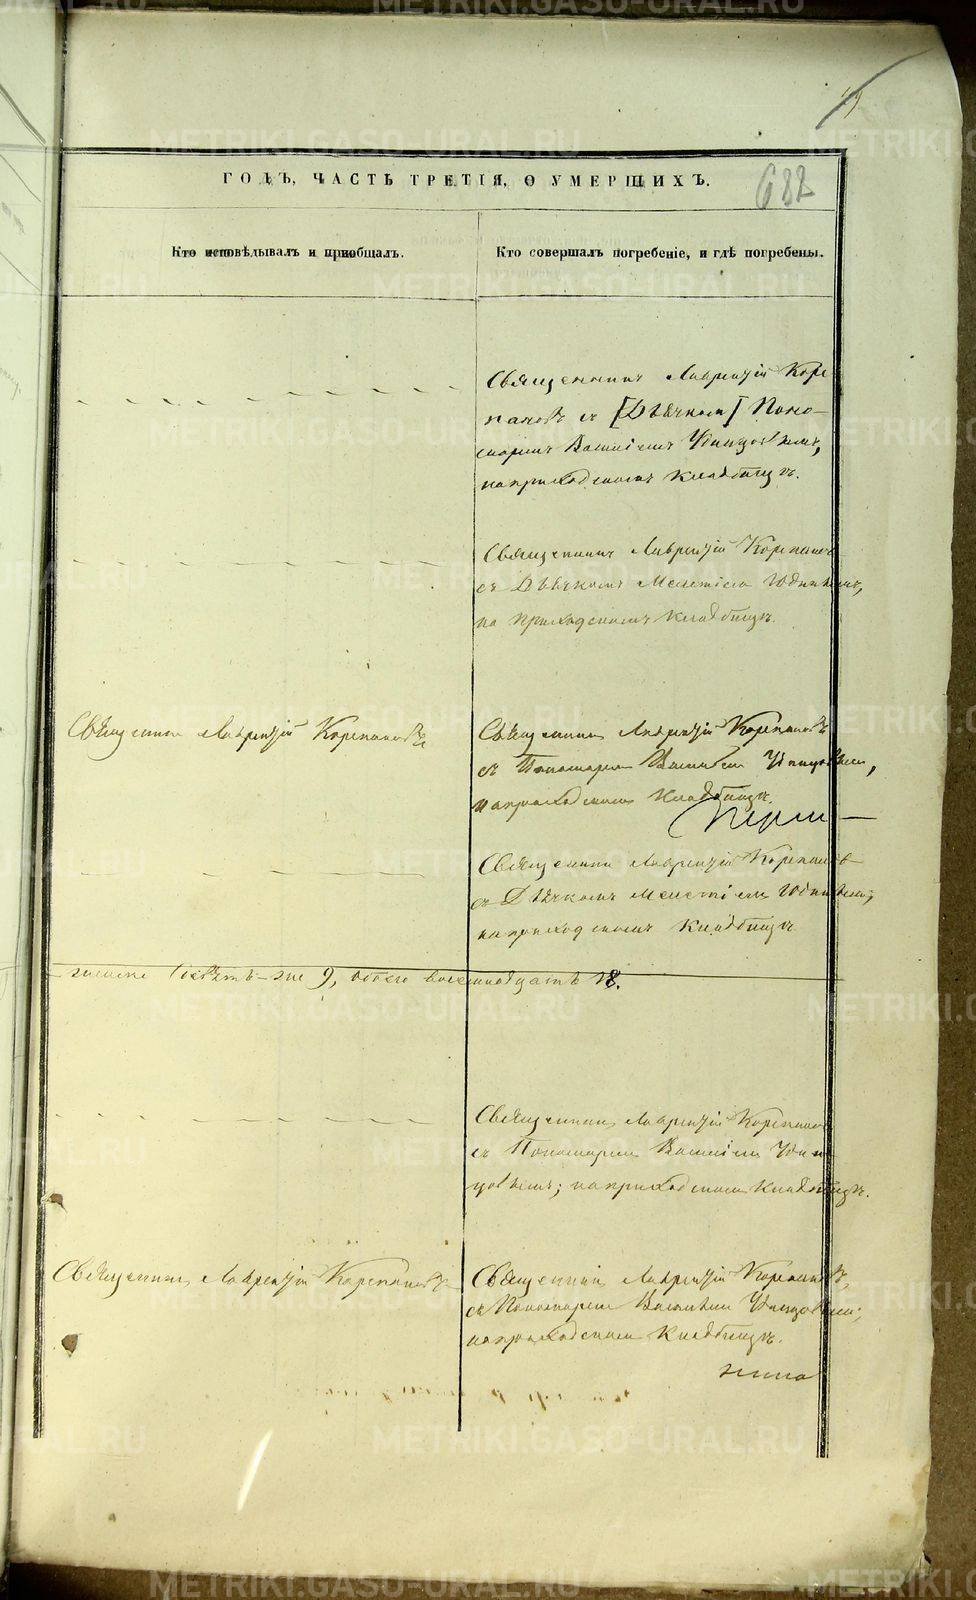 682
ГОДЪ, ЧАСТЬ ТРЕТІЯ, О УМЕРШИХЪ.
Кто исповѣдывалъ и приобщалъ.
Кто совершалъ погребеніе, и гдѣ погребены.
Священникъ Лаврентій Коре
пановъ съ [Дьячком] Поно-
маремъ Василіемъ
на приходскомъ кладбищѣ.
Священникъ Лаврентій Корепановъ
съ Дьячкомъ Мелетіемъ Юдинымъ,
на приходскомъ кладбищѣ.
Священникъ Лаврентій Корепановъ
Священникъ Лаврентій Корепановъ
съ Пономаремъ Василіемъ
на приходскомъ кладбищѣ.
Священникъ Лаврентій Корепановъ
съ Дьячкомъ Мелетіемъ Юдинымъ,
на приходскомъ кладбищѣ
9, обоего восемнадцать 18.
Священникъ Лаврентій Корепановъ
съ Пономаремъ Василіемъ
на приходскомъ кладбищѣ.
Священникъ Лаврентій Корепановъ
Священникъ Лаврентій Корепановъ,
съ Пономаремъ Василіемъ
на приходскомъ кладбищѣ.
METRIKI.GASO-URAL.RU